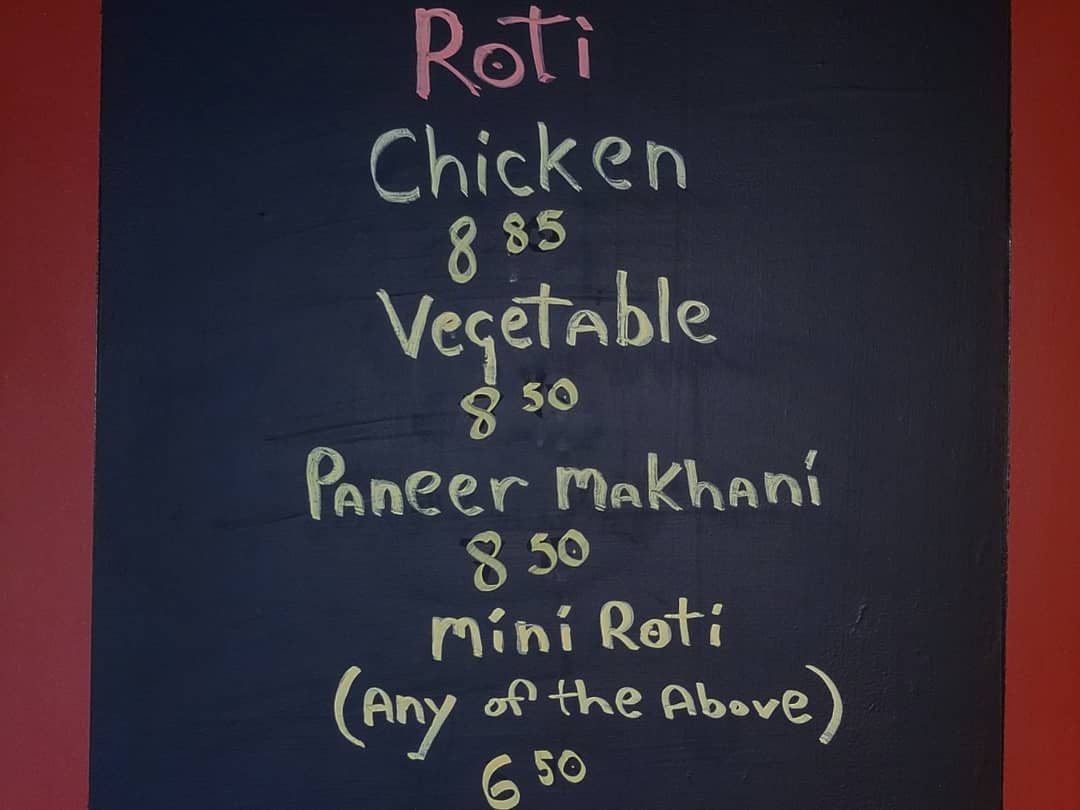 Roti
Chicken
8 85
Vegetable
8 50
Paneer Makhani
8 50
mini Roti
(Any of the Above)
6 50